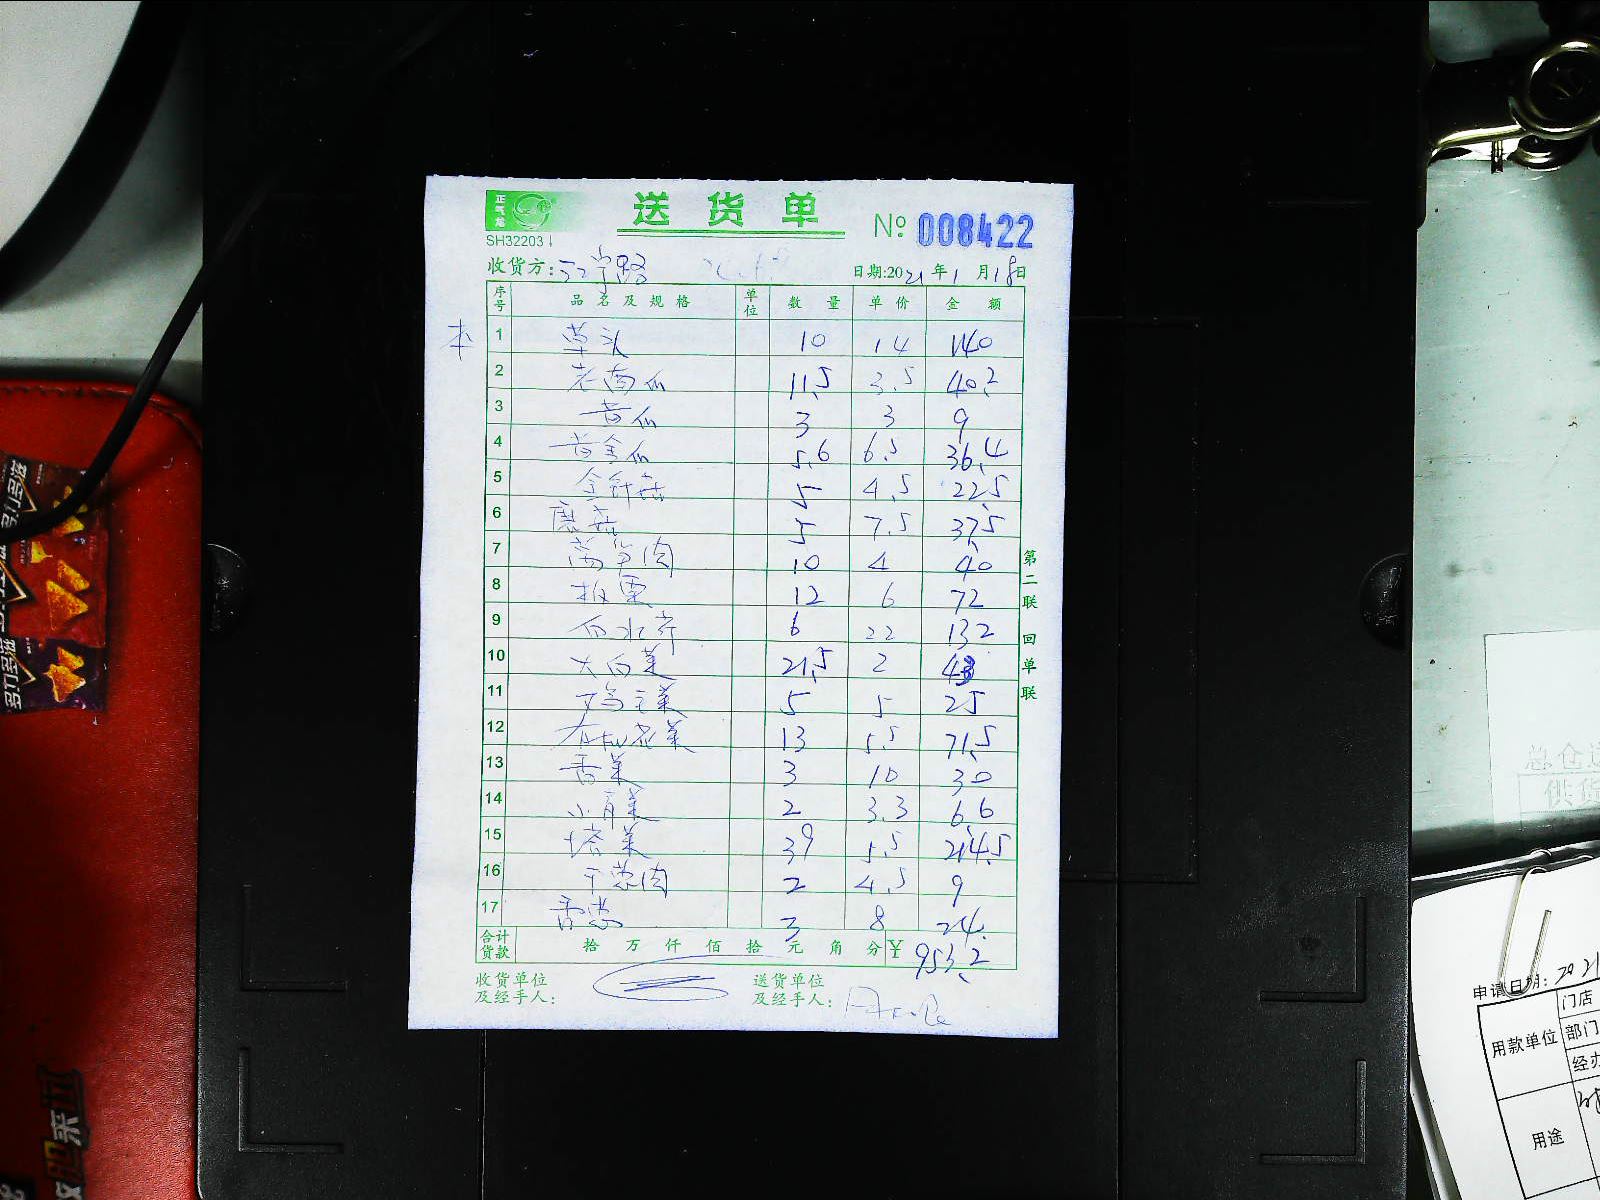 正气龙
送货单
№ 008422
SH32203
收货方: 江宁路
日期:2021年1月18日
序号 品名及规格 单位 数量 单价 金额
本
1 草头 10 14 140
2 老南瓜 11.5 3.5 40.2
3 黄瓜 3 3 9
4 黄金瓜 5.6 6.5 36.4
5 金针菇 5 4.5 22.5
6 蘑菇 5 7.5 37.5
7 莴笋肉 10 4 40
8 板栗 12 6 72
9 白水芹 6 22 132
10 大白菜 21.5 2 43
11 鸡毛菜 5 5 25
12 有机花菜 13 5.5 71.5
13 香菜 3 10 30
14 小青菜 2 3.3 6.6
15 塔菜 39 5.5 214.5
16 干葱肉 2 4.5 9
17 香葱 3 8 24
合计货款 拾 万 仟 佰 拾 元 角 分 ¥ 953.2
收货单位及经手人:
送货单位及经手人:
第二联 回单联
总仓
供货
申请日期: 2021
用款单位
门店
部门
经办
用途